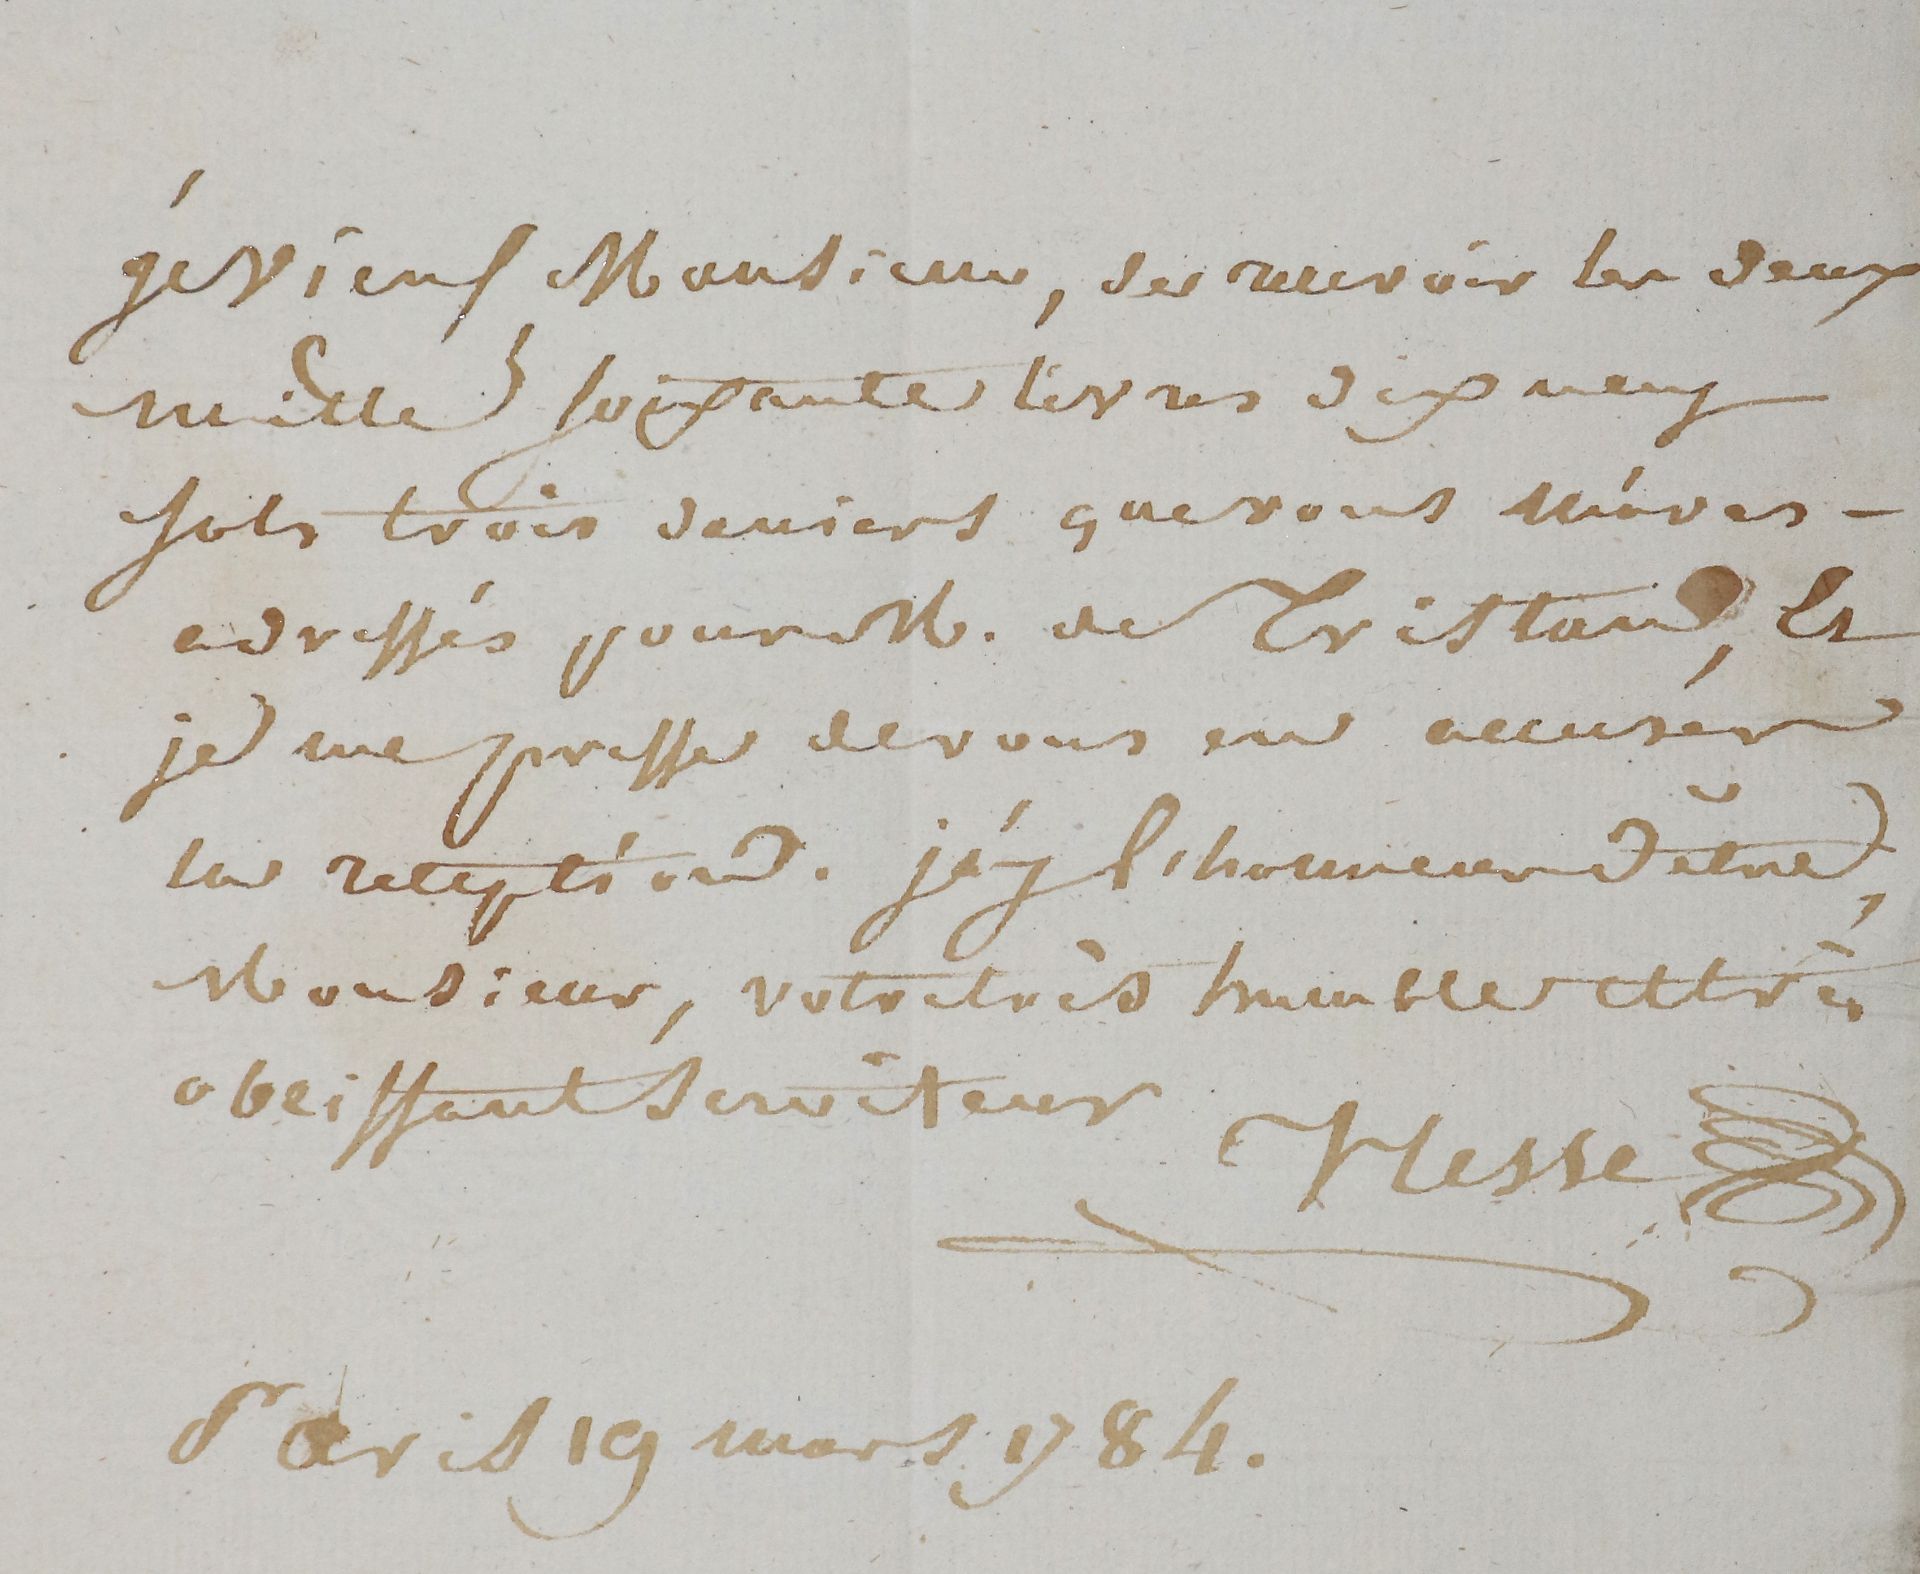 je viens Monsieur, de recevoir les deux
mille soixante livres dix neuf
sols trois deniers que vous m'avés -
adressés pour M. de Tristan, Et
je me presse de vous en accusér
la réception. j'ay l'honneur d'etre,
Monsieur, votre très humble et très
obeissant serviteur
Hesse
Paris 19 mars 1784.